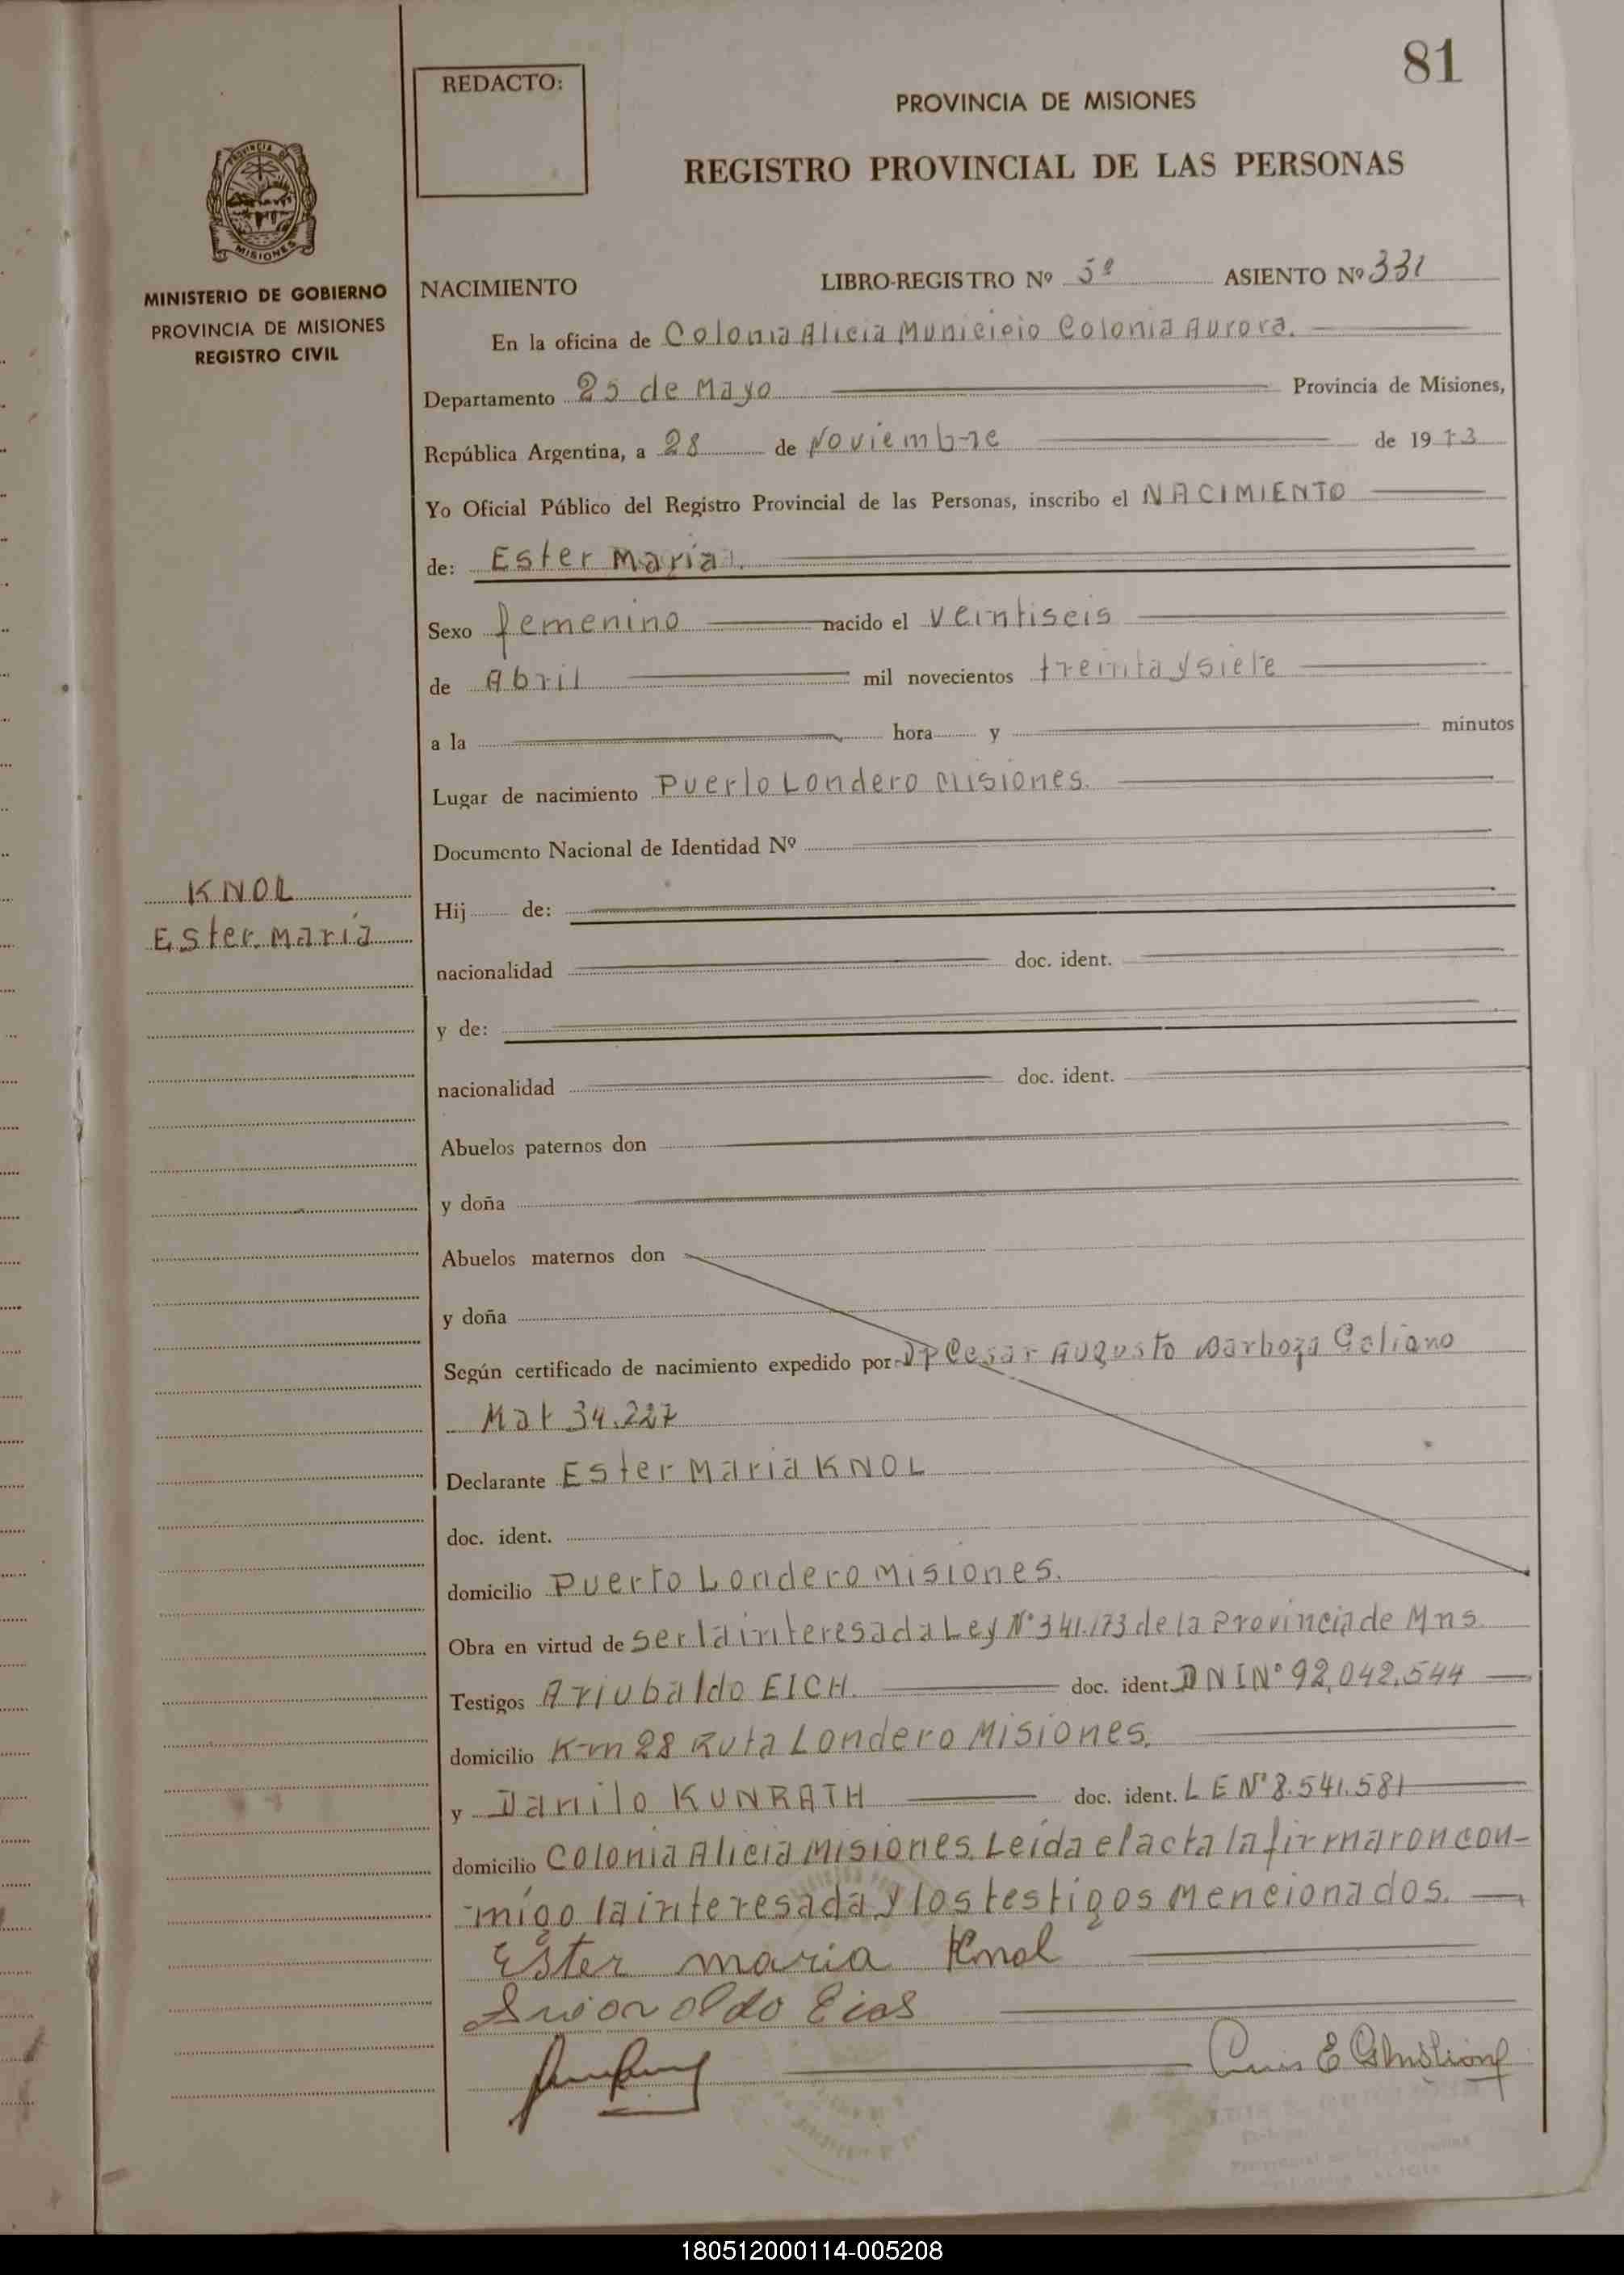 81
REDACTO:
PROVINCIA DE MISIONES
REGISTRO PROVINCIAL DE LAS PERSONAS
PROVINCIA DE
MISIONES
MINISTERIO DE GOBIERNO
PROVINCIA DE MISIONES
REGISTRO CIVIL
NACIMIENTO LIBRO-REGISTRO Nº 5º ASIENTO Nº 331
En la oficina de Colonia Alicia Municipio Colonia Aurora.
Departamento 25 de Mayo Provincia de Misiones,
República Argentina, a 28 de Noviembre de 1973
Yo Oficial Público del Registro Provincial de las Personas, inscribo el NACIMIENTO
de: Ester Maria.
Sexo femenino nacido el veintiseis
de Abril mil novecientos treinta y siete
a la hora y minutos
Lugar de nacimiento Puerto Londero Misiones.
Documento Nacional de Identidad Nº
KNOL
Ester Maria
Hij de:
nacionalidad doc. ident.
y de:
nacionalidad doc. ident.
Abuelos paternos don
y doña
Abuelos maternos don
y doña
Según certificado de nacimiento expedido por Cesar Augusto Barboza Galiano
Mat 34.227
Declarante Ester Maria KNOL
doc. ident.
domicilio Puerto Londero Misiones.
Obra en virtud de ser la interesada Ley Nº 341/73 de la Provincia de Mns.
Testigos Ariubaldo EICH. doc. ident. DNI Nº 92,042,544
domicilio Km 28 Ruta Londero Misiones.
y Danilo KUNRATH doc. ident. LE Nº 8.541.581
domicilio Colonia Alicia Misiones. Leída el acta la firmaron con-
migo la interesada y los testigos Mencionados.
Ester maria Knol
180512000114-005208